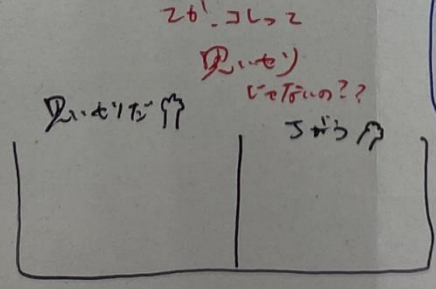 てか、コレって
思いやり
じゃないの??
思いやりだ
ちがう